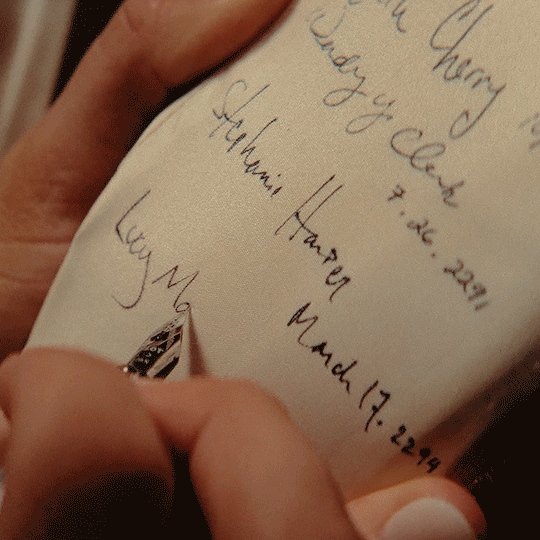 Cherry
Wendy y. Clark
7.26.2291
Stephanie Harper
March 17.2294
Lucy Mc